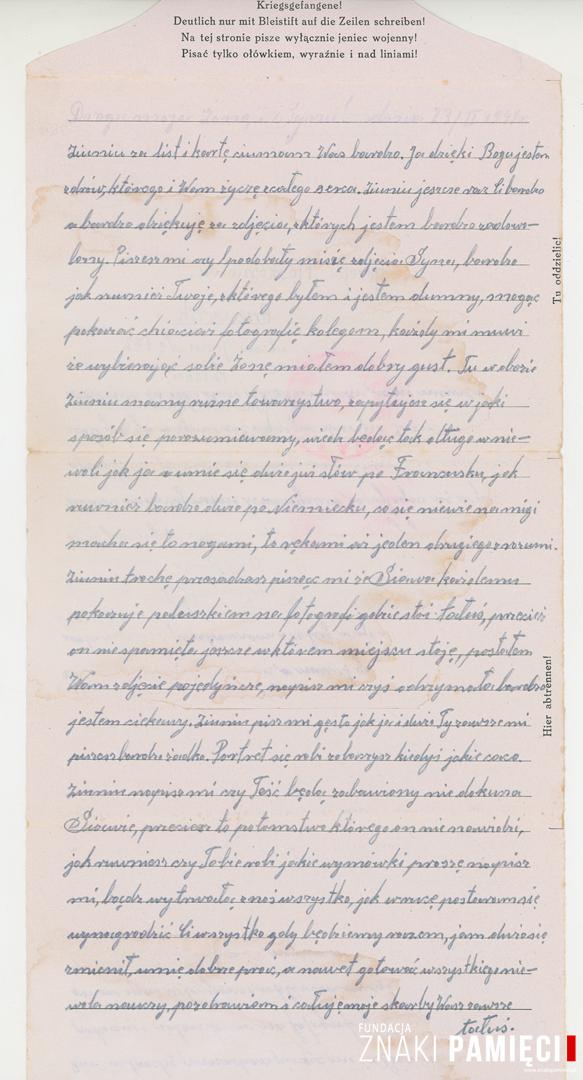 Kriegsgefangene!
Deutlich nur mit Bleistift auf die Zeilen schreiben!
Na tej stronie pisze wyłącznie jeniec wojenny!
Pisać tylko ołówkiem, wyraźnie i nad liniami!
Droga moja Żono i Synu! dnia
Ziuniu za list i kartę ciumam Was bardzo. Ja dzięki Bogu jestem
zdrów, którego i Wam życzę z całego serca. Ziuniu jeszcze raz Ci bardzo
a bardzo dziękuję za zdjęcia, których jestem bardzo zadowo-
lony. Piszesz mi czy podobały mi się zdjęcia Syna, bardzo
jak ruwnież Twoje, którego byłem i jestem dumny, mogąc
pokazać chociaż fotografię kolegom, każdy mi muwi
że wybierając sobie Żonę miałem dobry gust. Tu w obozie
Ziuniu mamy rużne towarzystwo, zapytasz się w jaki
sposób się porozumiewamy, będąc tak długo w nie-
woli jak ja umie się dużo już słów po Francusku, jak
ruwnież bardzo dużo po Niemiecku, co się niewie na migi
macha się to nogami, to rękami aż jeden drugiego zrozumi.
Ziuniu trochę przesadzasz pisząc mi że każdemu
pokazuje paluszkiem na fotografi gdzie stoi tatuś, przecież
on nie spamięta jeszcze w którem miejscu stoję, posłałem
Wam zdjęcie pojedyńcze, napisz mi czyś odrzymała bardzo
jestem ciekawy. Ziuniu pisz mi gęsto jak ja i dużo Ty zawsze mi
piszesz bardzo żadko. Portret się robi zobaczysz kiedyś jakie caca.
Ziuniu napisz mi czy Teść będąc zabawiony nie dokucza
przecież to potomstwo którego on nie nawidzi,
jak ruwniesz czy Tobie robi jakie wymówki proszę napisz
mi, bądź wytrwałą znoś wszystko, jak wrucę postaram się
wynagrodzić Ci wszystko gdy będziemy razem, jam dużo się
zmienił, umię dobrze prać, a nawet gotować wszystkiego nie-
wola nauczy, pozdrawiam i całuję moje skarby Was zawsze
tatuś.
Tu oddzielić!
Hier abtrennen!
FUNDACJA
ZNAKI PAMIĘCI